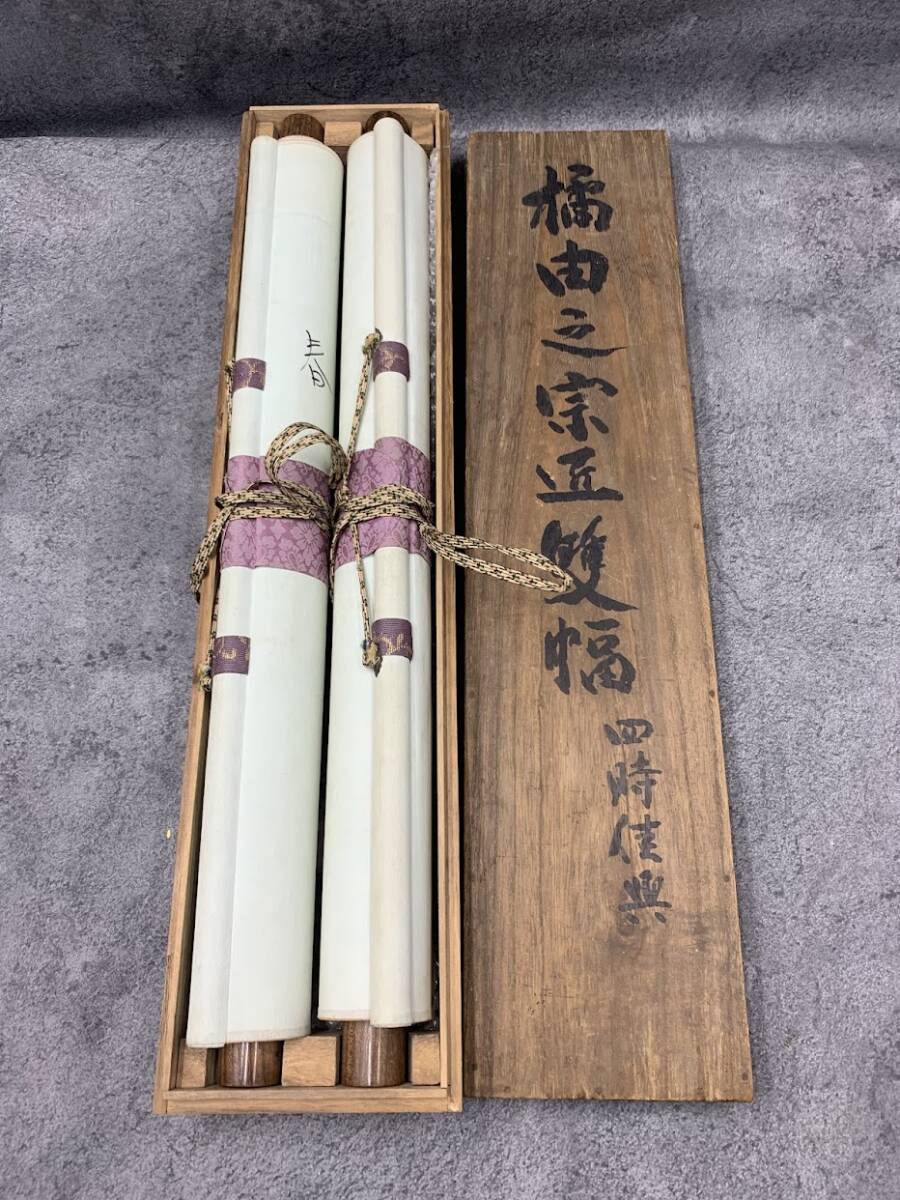 橘由之宗匠雙幅
四時佳興
春